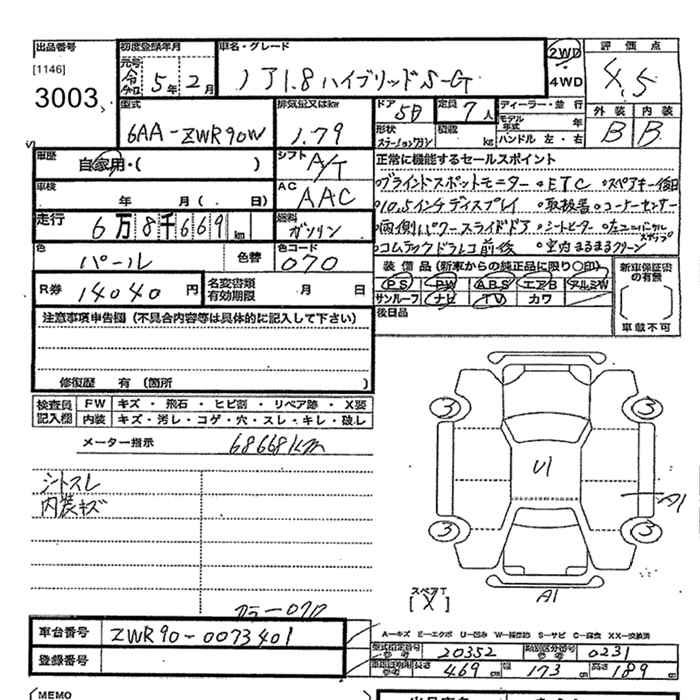 出品番号 初度登録年月 車名・グレード 2WD 評価点
[1146] 元号 令和 5年 2月 ノア1.8 ハイブリッドS-G 4WD 4.5
3003
型式 排気量又はkw ドア 5D 定員 7人 ディーラー・並行 外装 内装
6AA-ZWR90W 1.79 形状 ステーションワゴン 積載 kg モデル年式 年 B B
ハンドル 左・右
車歴 自家用・( ) シフト A/T 正常に機能するセールスポイント
車検 年 月( . 日) AC AAC ・ブラインドスポットモニター ・ETC ・スペアキー1個
・10.5インチディスプレイ ・取扱書 ・コーナーセンサー
走行 6万8千669km 燃料 ガソリン ・両側パワースライドドア ・シートヒーター ・左ユニバーサルステップ
色 パール 色替 色コード 070 ・コムテックドラレコ前後 ・室内まるまるクリーン
装備品(新車からの純正品に限り〇印) 新車保証書の有無
R券 14040円 名変書類有効期限 月 日 PS PW ABS エアB アルミW
サンルーフ ナビ TV カワ
後日品 車載不可
注意事項申告欄(不具合内容等は具体的に記入して下さい)
修復歴 有(箇所 )
検査員記入欄 FW キズ・飛石・ヒビ割・リペア跡・X要
内装 キズ・汚レ・コゲ・穴・スレ・キレ・破レ
メーター指示 68668km
3 3
U1
A1
シートスレ
内装キズ
3 3
スペアT
[X] A1
カラー070
車台番号 ZWR90-0073401
A-キズ E-エクボ U-凹み W-補修跡 S-サビ C-腐食 XX-交換済
登録番号 型式指定番号 20352 類別区分番号 0231
長さ 469cm 幅 173cm 高さ 189cm
MEMO